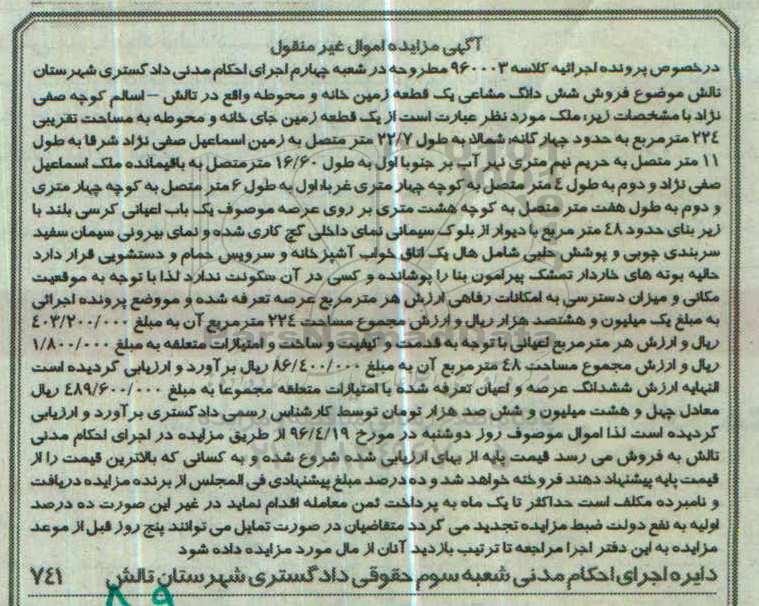 آگهی مزایده اموال غیر منقول
درخصوص پرونده اجرائیه کلاسه ۹۶۰۰۰۳ مطروحه در شعبه چهارم اجرای احکام مدنی دادگستری شهرستان
تالش موضوع فروش شش دانگ مشاعی یک قطعه زمین خانه و محوطه واقع در تالش – اسالم کوچه صفی
نژاد با مشخصات زیر: ملک مورد نظر عبارت است از یک قطعه زمین جای خانه و محوطه به مساحت تقریبی
۲۲٤ متر مربع به حدود چهارگانه: شمالا به طول ۲۲/۷ متر متصل به زمین اسماعیل صفی نژاد شرقا به طول
۱۱ متر متصل به حریم نیم متری نهر آب بر جنوبا اول به طول ۱۶/۶۰ متر متصل به باقیمانده ملک اسماعیل
صفی نژاد و دوم به طول ٤ متر متصل به کوچه چهار متری غربا: اول به طول ۶ متر متصل به کوچه چهار متری
و دوم به طول هفت متر متصل به کوچه هشت متری بر روی عرصه موصوف یک باب اعیانی کرسی بلند با
زیر بنای حدود ٤۸ متر مربع با دیوار از بلوک سیمانی نمای داخلی گچ کاری شده و نمای بیرونی سیمان سفید
سربندی چوبی و پوشش حلبی شامل هال یک اتاق خواب آشپزخانه و سرویس حمام و دستشویی قرار دارد
حالیه بوته های خاردار تمشک پیرامون بنا را پوشانده و کسی در آن سکونت ندارد لذا با توجه به موقعیت
مکانی و میزان دسترسی به امکانات رفاهی ارزش هر متر مربع عرصه تعرفه شده و موضع پرونده اجرائی
به مبلغ یک میلیون و هشتصد هزار ریال و ارزش مجموع مساحت ۲۲٤ متر مربع آن به مبلغ ٤۰۳/۲۰۰/۰۰۰
ریال و ارزش هر متر مربع اعیانی با توجه به قدمت و کیفیت و ساخت و امتیازات متعلقه به مبلغ ۱/۸۰۰/۰۰۰
ریال و ارزش مجموع مساحت ٤۸ متر مربع آن به مبلغ ۸۶/٤۰۰/۰۰۰ ریال برآورد و ارزیابی گردیده است
النهایه ارزش ششدانگ عرصه و اعیان تعرفه شده با امتیازات متعلقه مجموعا به مبلغ ٤۸۹/۶۰۰/۰۰۰ ریال
معادل چهل و هشت میلیون و شش صد هزار تومان توسط کارشناس رسمی دادگستری برآورد و ارزیابی
گردیده است لذا اموال موصوف روز دوشنبه در مورخ ۹۶/٤/۱۹ از طریق مزایده در اجرای احکام مدنی
تالش به فروش می رسد قیمت پایه از بهای ارزیابی شده شروع شده و به کسانی که بالاترین قیمت را از
قیمت پایه پیشنهاد دهند فروخته خواهد شد و ده درصد مبلغ پیشنهادی فی المجلس از برنده مزایده دریافت
و نامبرده مکلف است حداکثر تا یک ماه به پرداخت ثمن معامله اقدام نماید در غیر این صورت ده درصد
اولیه به نفع دولت ضبط مزایده تجدید می گردد متقاضیان در صورت تمایل می توانند پنج روز قبل از موعد
مزایده به این دفتر اجرا مراجعه تا ترتیب بازدید آنان از مال مورد مزایده داده شود
دایره اجرای احکام مدنی شعبه سوم حقوقی دادگستری شهرستان تالش ۷٤۱